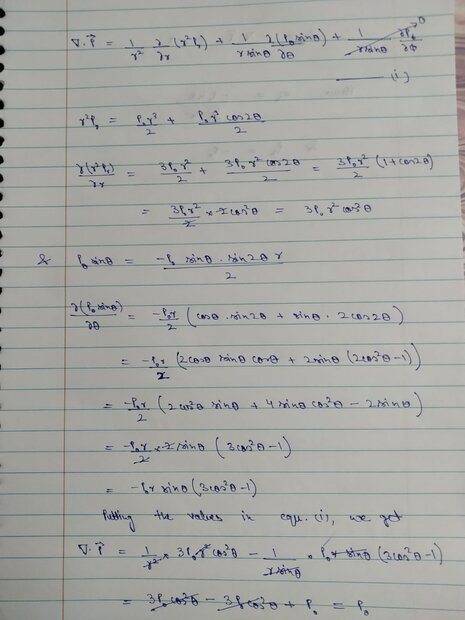 ∇·P⃗ = 1/r² ∂/∂r (r²Pᵣ) + 1/(r sinθ) ∂(P_θ sinθ)/∂θ + 1/(r sinθ) ∂P_ϕ/∂ϕ → 0
——— (i)
r²Pᵣ = P₀r³/2 + P₀r³ cos2θ/2
∂(r²Pᵣ)/∂r = 3P₀r²/2 + 3P₀r² cos2θ/2 = 3P₀r²/2 (1+cos2θ)
= 3P₀r²/2 × 2cos²θ = 3P₀r² cos²θ
& P_θ sinθ = -P₀ sinθ · sin2θ r/2
∂(P_θ sinθ)/∂θ = -P₀r/2 (cosθ · sin2θ + sinθ · 2cos2θ)
= -P₀r/2 (2cosθ sinθ cosθ + 2sinθ (2cos²θ-1))
= -P₀r/2 (2cos²θ sinθ + 4 sinθ cos²θ - 2sinθ)
= -P₀r/2 × 2 sinθ (3cos²θ-1)
= -P₀r sinθ (3cos²θ-1)
Putting the values in equ. (i), we get
∇·P⃗ = 1/r² × 3P₀r² cos²θ - 1/(r sinθ) × P₀r sinθ (3cos²θ-1)
= 3P₀cos²θ - 3P₀cos²θ + P₀ = P₀